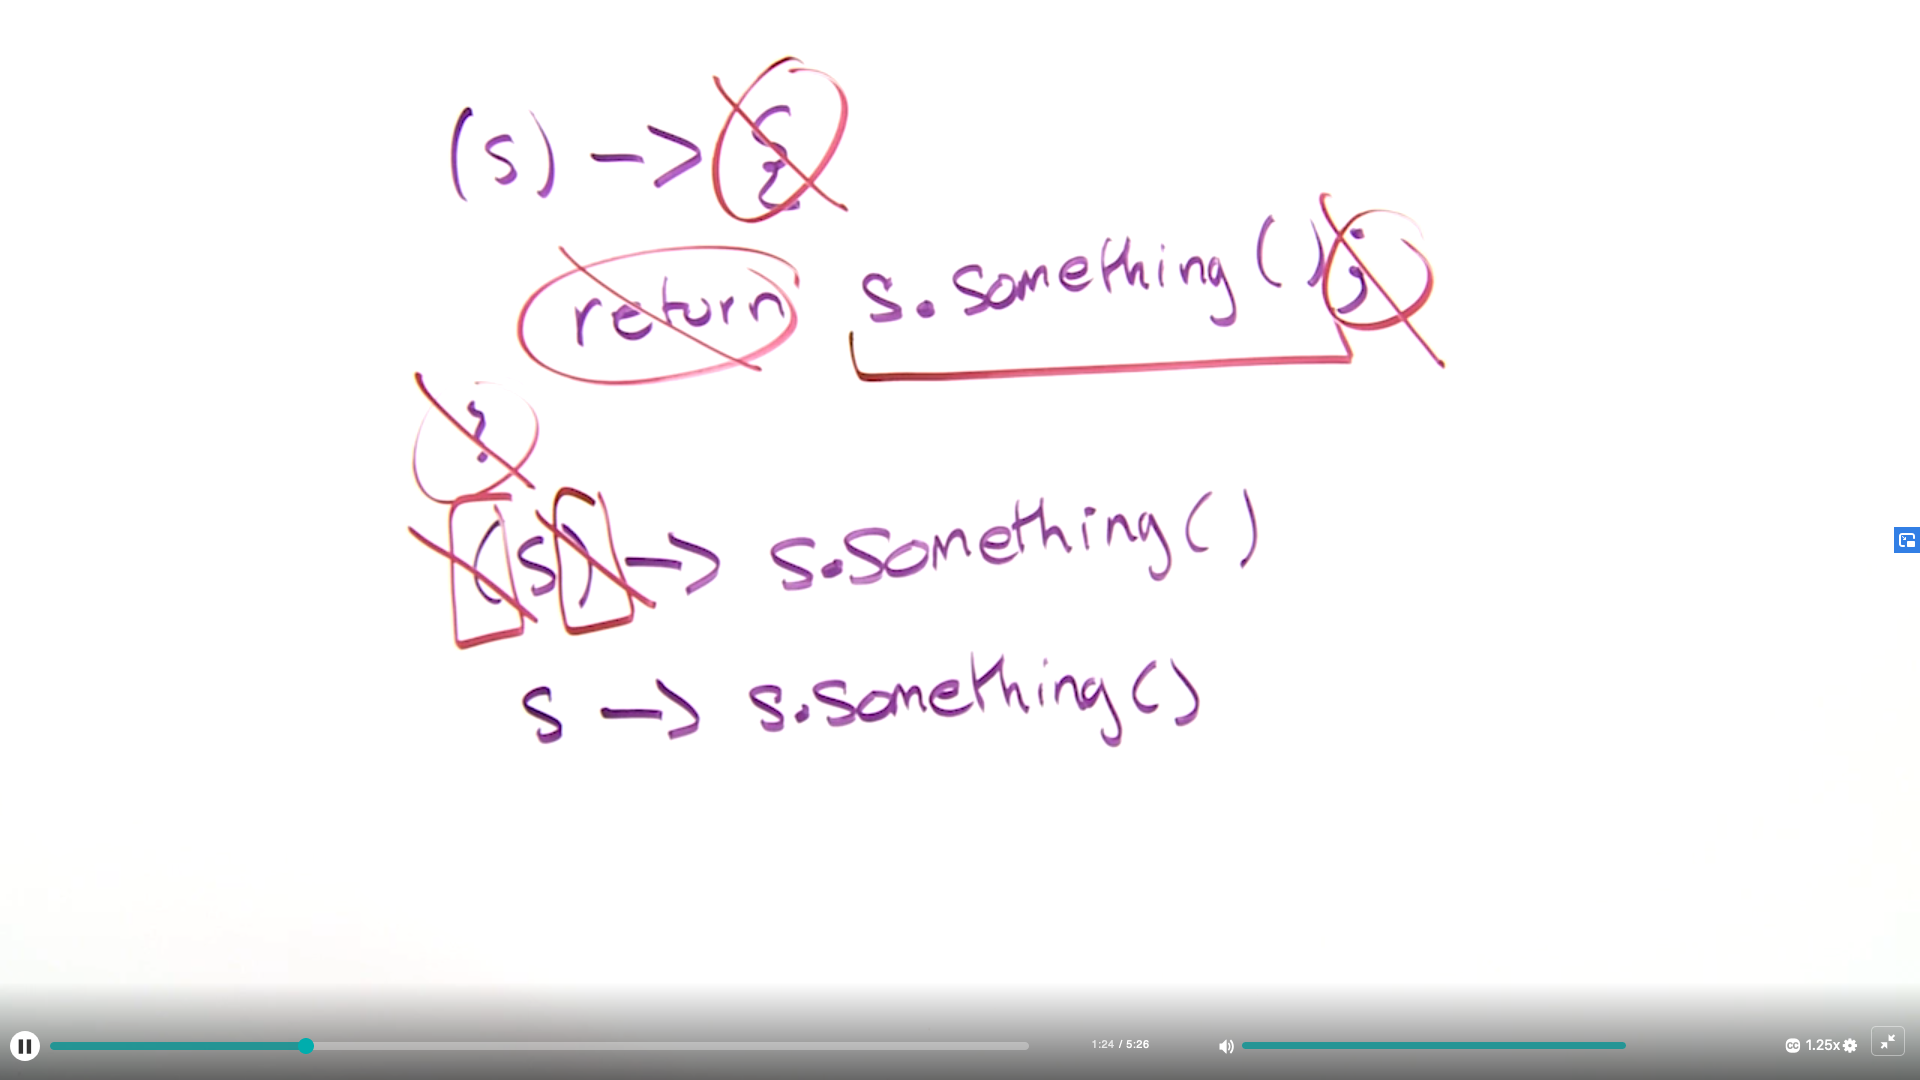 (s) -> {
return s.something();
}
(s) -> s.something()
s -> s.something()
1:24 / 5:26
CC 1.25x